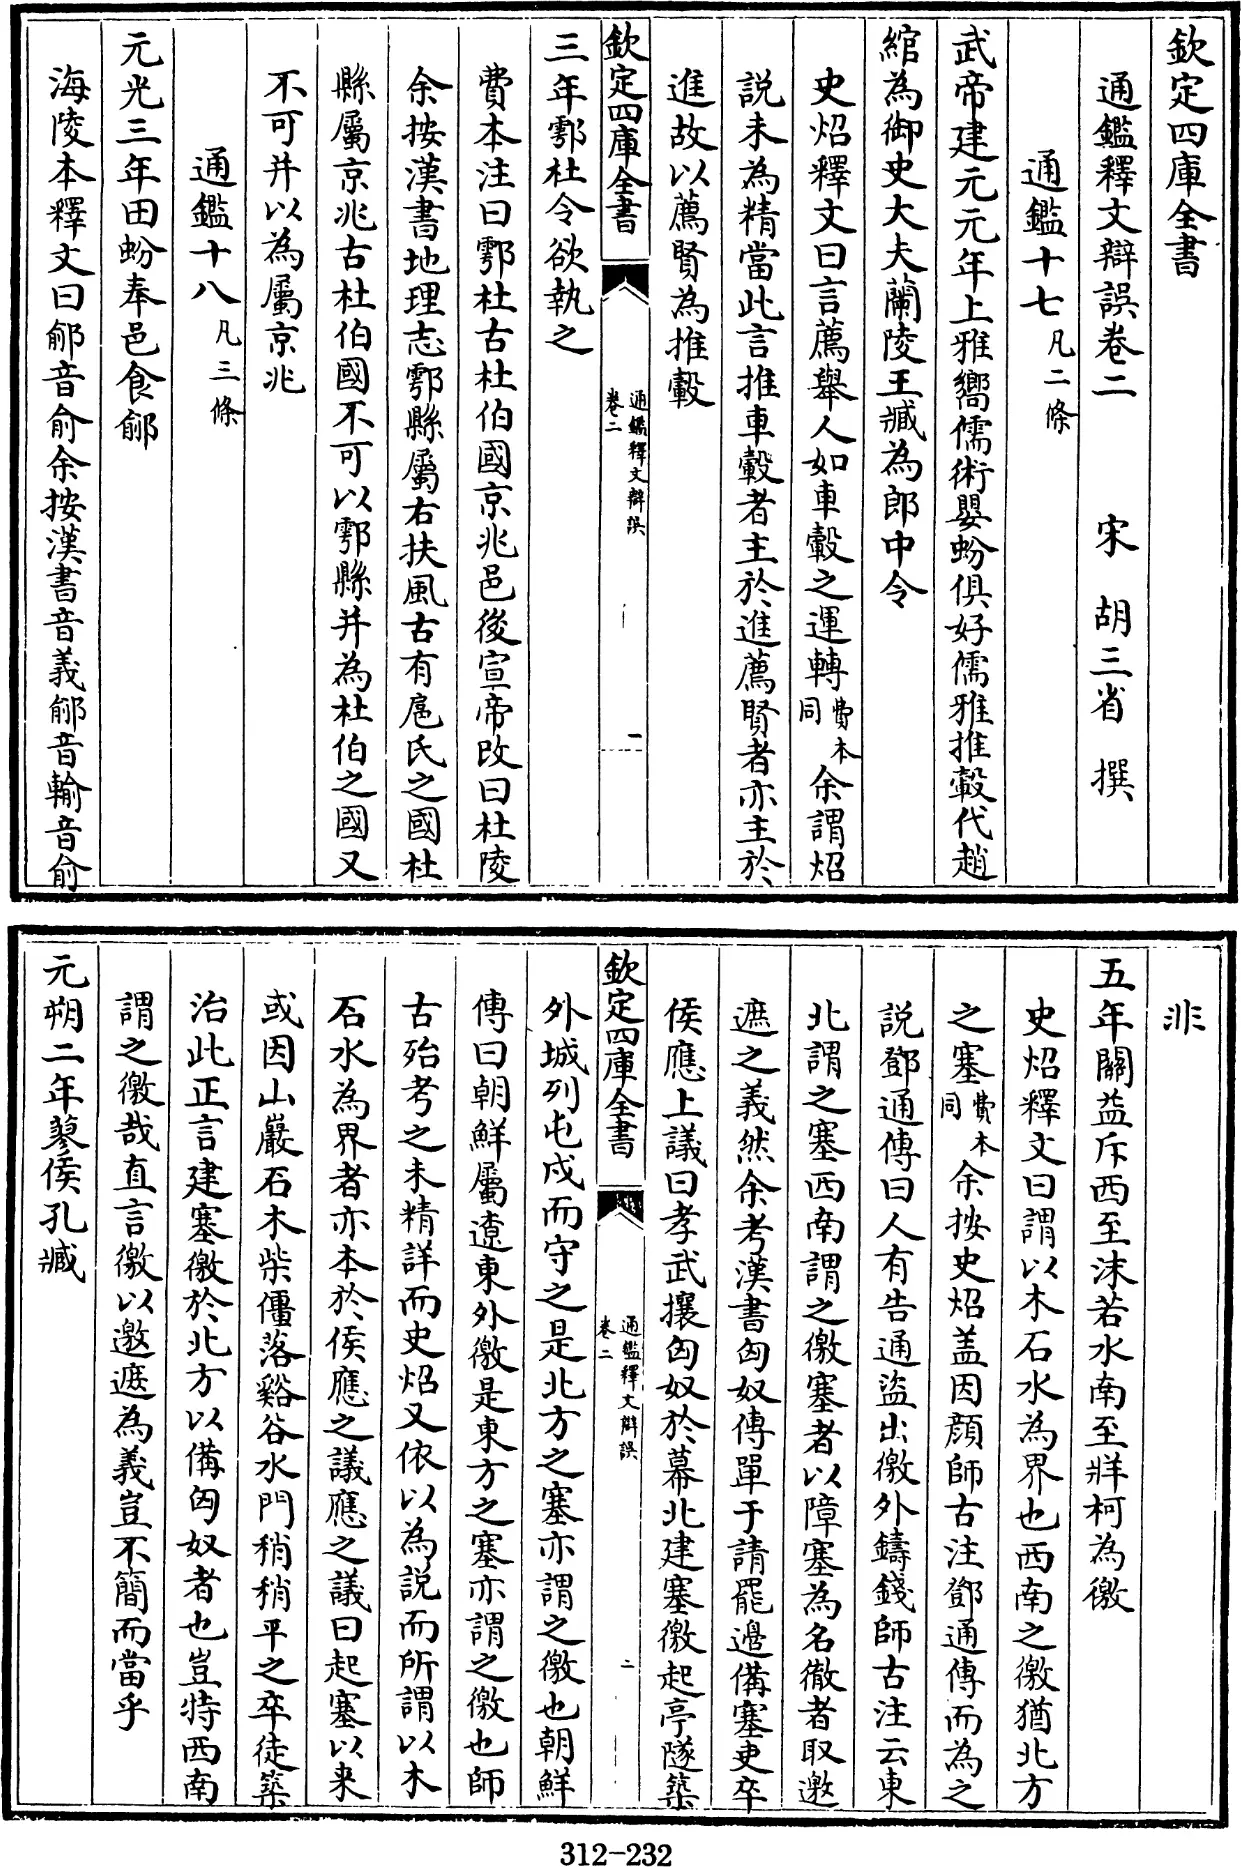 欽定四庫全書
通鑑釋文辯誤卷二　宋　胡三省　撰
通鑑十七凡二條
武帝建元元年上雅嚮儒術嬰蚡俱好儒雅推轂代趙
綰為御史大夫蘭陵王臧為郎中令
史炤釋文曰言薦舉人如車轂之運轉費本同余謂炤
説未為精當此言推車轂者主於進薦賢者亦主於
進故以薦賢為推轂
欽定四庫全書
通鑑釋文辯誤
卷二
一
三年鄠杜令欲執之
費本注曰鄠杜古杜伯國京兆邑後宣帝改曰杜陵
余按漢書地理志鄠縣屬右扶風古有扈氏之國杜
縣屬京兆古杜伯國不可以鄠縣并為杜伯之國又
不可并以為屬京兆
通鑑十八凡三條
元光三年田蚡奉邑食鄃
海陵本釋文曰鄃音俞余按漢書音義鄃音輸音俞
非
五年關益斥西至沬若水南至牂柯為徼
史炤釋文曰謂以木石水為界也西南之徼猶北方
之塞費本同余按史炤盖因顔師古注鄧通傳而為之
説鄧通傳曰人有告通盜出徼外鑄錢師古注云東
北謂之塞西南謂之徼塞者以障塞為名徼者取邀
遮之義然余考漢書匈奴傳單于請罷邊備塞吏卒
侯應上議曰孝武攘匈奴於幕北建塞徼起亭隧築
欽定四庫全書
通鑑釋文辯誤
卷二
二
外城列屯戍而守之是北方之塞亦謂之徼也朝鮮
傳曰朝鮮屬遼東外徼是東方之塞亦謂之徼也師
古殆考之未精詳而史炤又依以為説而所謂以木
石水為界者亦本於侯應之議應之議曰起塞以来
或因山巖石木柴僵落谿谷水門稍稍平之卒徒築
治此正言建塞徼於北方以備匈奴者也豈特西南
謂之徼哉直言徼以邀遮為義豈不簡而當乎
元朔二年蓼侯孔臧
312-232